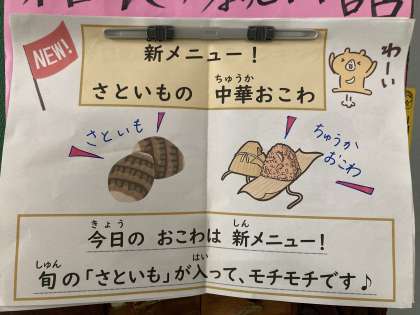 NEW!
新メニュー！
ちゅうか
さといもの 中華おこわ
わーい
さといも
ちゅうか
おこわ
きょう しん
今日の おこわは 新メニュー！
しゅん はい
旬の「さといも」が入って、モチモチです♪